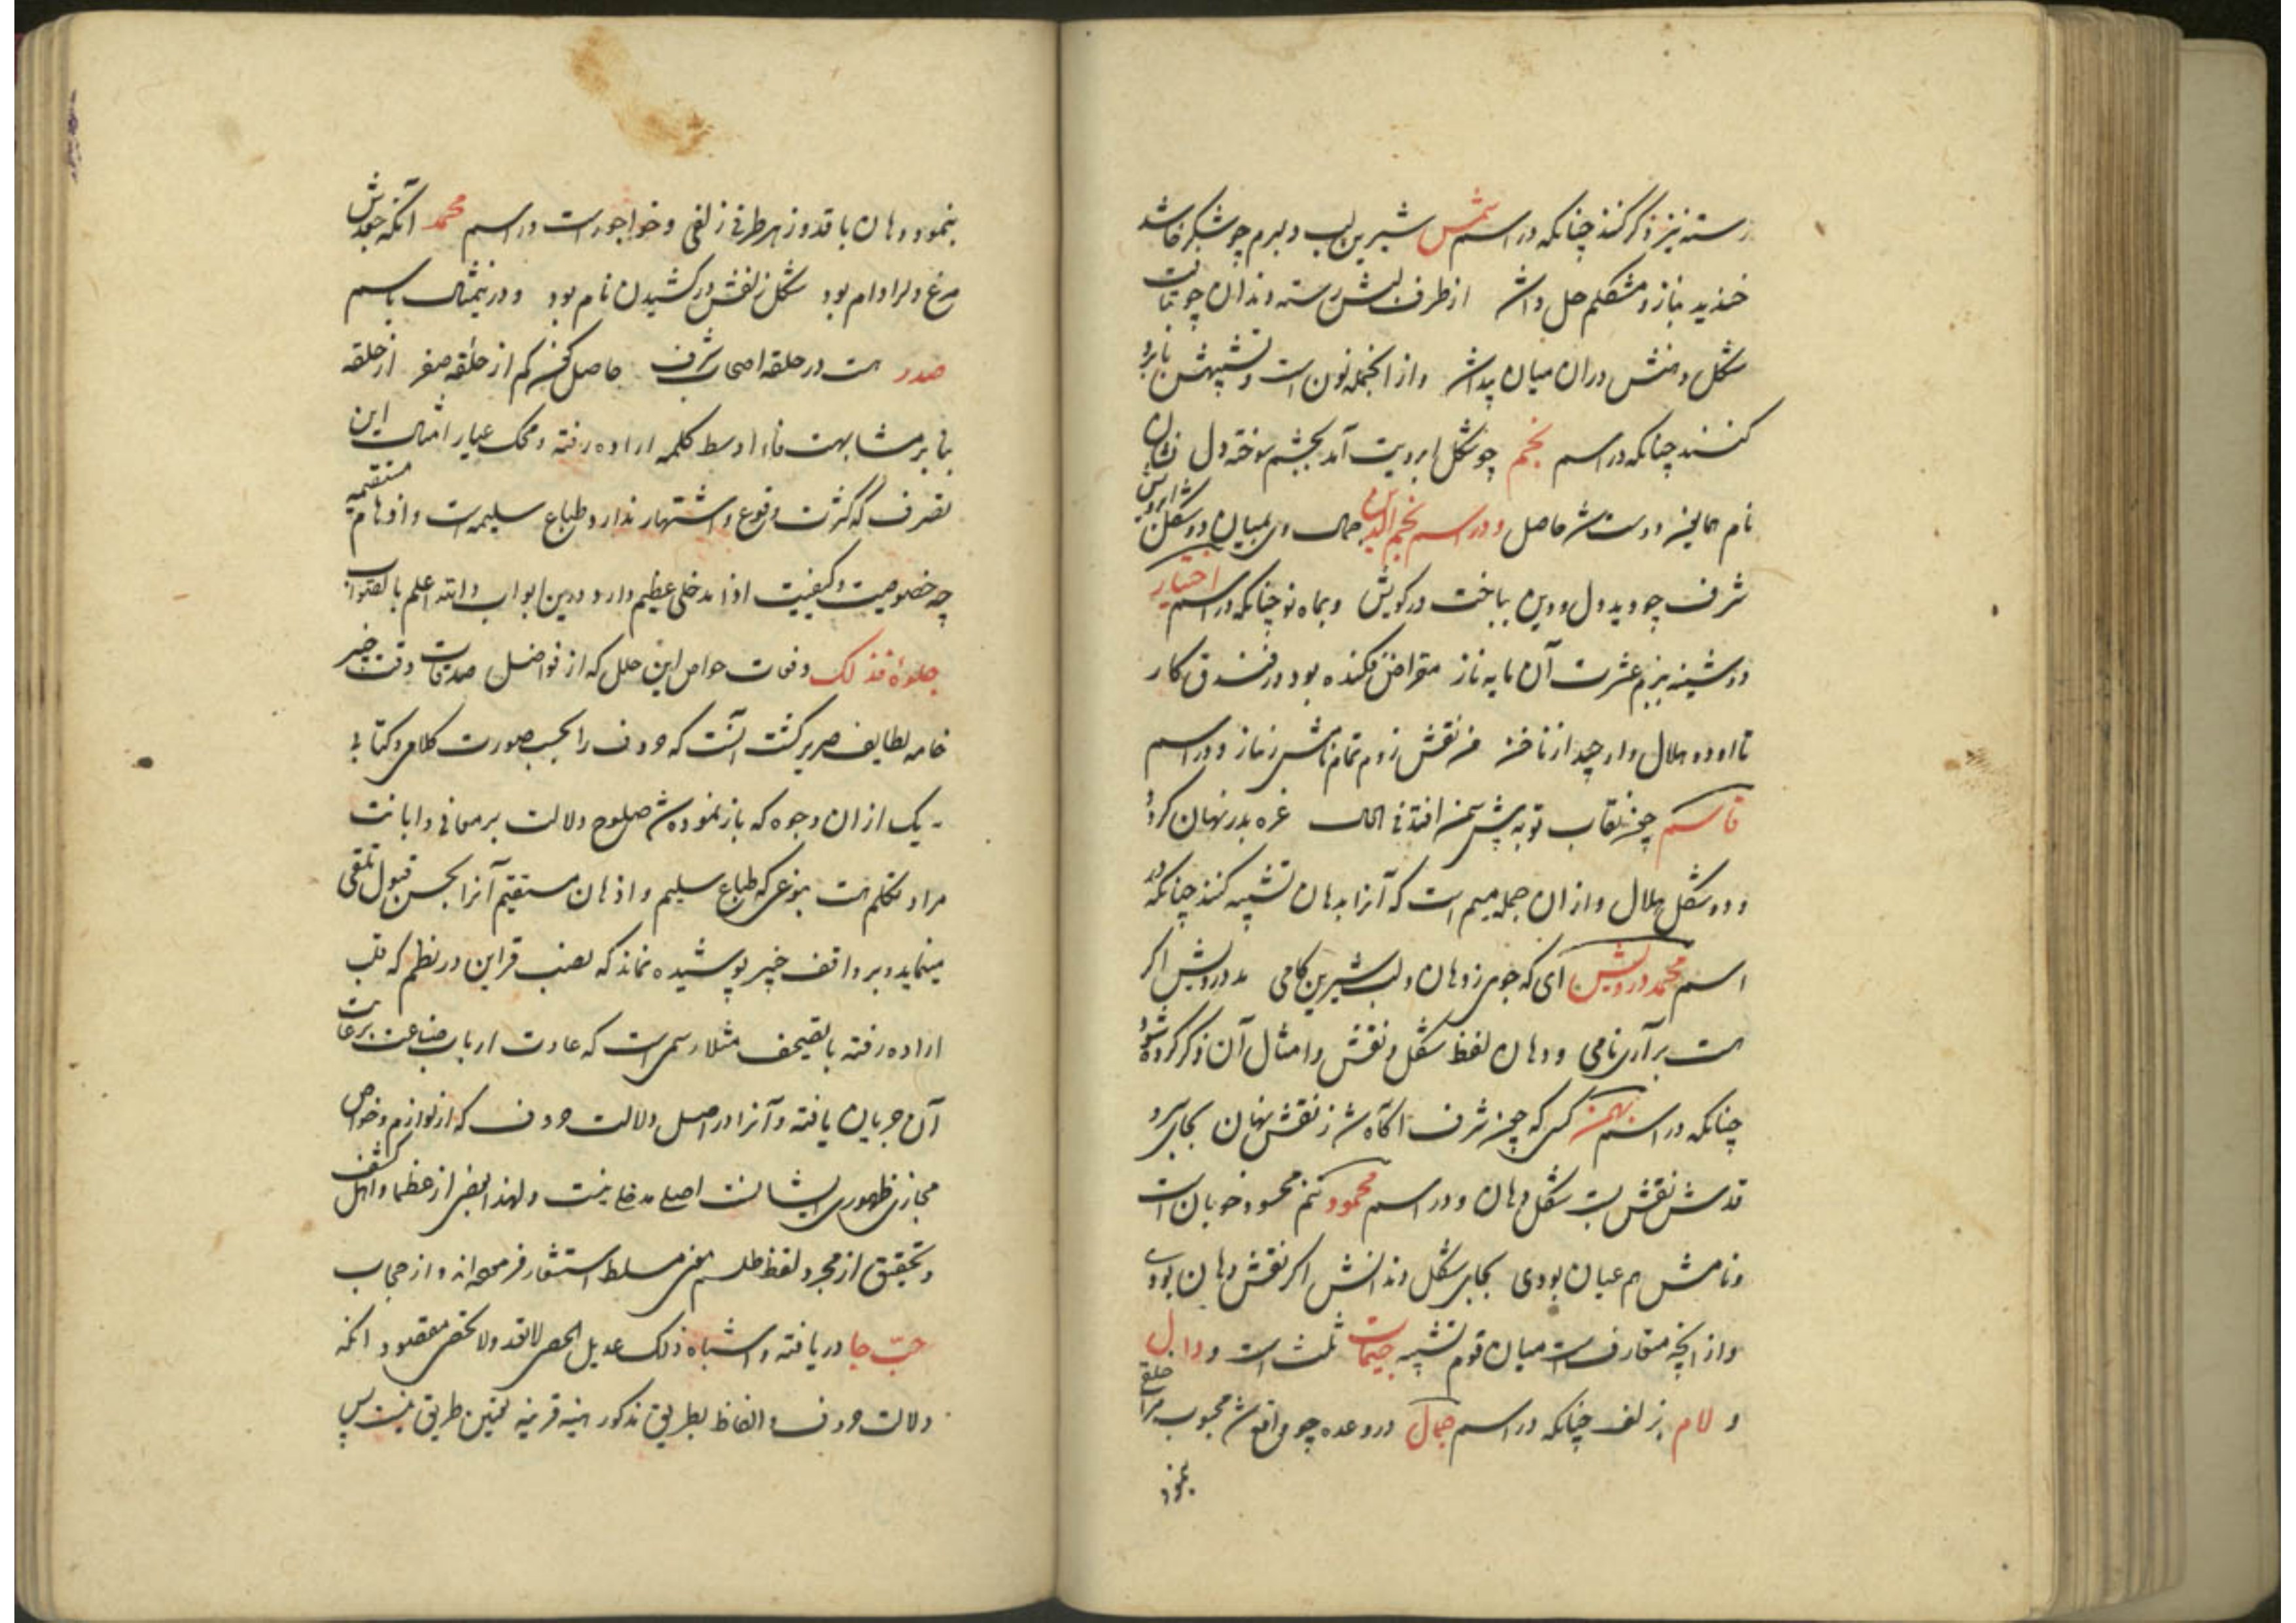 رسته نیز ذکر کنند چنانکه در اسم شمس شیرین لب دلبرم چو شکر خا شد
خندید بناز و مشکلم حل دانست از طرف لبش رسته دندان چو نبات
شکل دهنش در آن میان پیدا شد و از آنجمله نون است و تشبیهش بابرو
کنند چنانکه در اسم نجم چو شکل ابرویت آمد بچشم سوخته دل نشان
نام همایون دوست شد حاصل و در اسم نجم الدین جمال وی بمیان دو شکل ابرویش
شرف چو دید دل و دین بباخت در کویش و بماه نو چنانکه در اسم اختیار
دوشینه ببزم عشرت آن مایه ناز مقراض فکنده بود در فندق کار
تا او دو هلال وار چید از ناخن من نقش زدم تمام نامش ز نیاز و در اسم
قاسم چون نقاب تو به پیش سمن افتد فی الحال غره بدر نهان کرد
و دو شکل هلال و از ان جمله میم است که آنرا بدهان تشبیه کنند چنانکه در
اسم محمد درویش ای که جوی ز دهان و لب شیرین کامی مد درویش اگر
هست برآری نامی و دهان لفظ شکل و نقش و امثال آن ذکر کرده شود
چنانکه در اسم بهمن کسی که چون شرف آگاه شد ز نقش نهان بجای سرو
قدش نقش بست شکل دهان و در اسم محمود تنم محسود خوبان است
و نامش هم عیان بودی بجای شکل دندانش اگر نقش دهان بودی
و از آنچه متعارفست میان قوم تشبیه جیمات ثلث است و دال
و لام بزلف چنانکه در اسم جمال در وعده چو واقع شد محبوب مرا خلقی
بنمود
بنمود دهان با قد و ز هر طرفی زلفی و خواجوراست در اسم محمد آنکه جعدش
مرغ دلرا دام بود شکل زلفش در کشیدن نام بود و درین مثال باسم
صدر هست در حلقه اصحاب شرف حاصل کن کم از حلقه صفر از حلقه
بنا بر مشابهت فا و اوسط کلمه اراده رفته و محک عیار امثال این
تصرف که کثرت وقوع و اشتهار ندارد طباع سلیمه است و اذهان مستقیمه
چه خصوصیت و کیفیت ادا مدخلی عظیم دارد درین ابواب والله اعلم بالصواب
جلوهٔ فذلک وفات خواص این حلل که از فواضل صدقات وقت خبیر
خامه لطایف صریر گشت آنست که حروف را بحسب صورت کلامی و کتابی
یک از ان وجوه که باز نموده شد صلوح دلالت بر معانی و ابانت
مراد متکلم هست بنوعی که طباع سلیم و اذهان مستقیم آنرا بحسن قبول تلقی
مینماید و بر واقف خبیر پوشیده نماند که نصب قراین در نظم که قلب
اراده رفته یا تصحیف مثلا رسمی است که عادت ارباب صناعت برعایت
آن جریان یافته و آنرا در اصل دلالت حروف که از لوازم و خواص
مجازی ظهوری ایشانست اصلا مدخلی نیست و لهذا بعضی از عظما و اهل کشف
و تحقیق از مجرد لفظ طلسم معنی مسلط استشعار فرموده‌اند و از حجاب
حب جا دریافته و اشباه ذلک عدیل الحصی لا تعد و لا تحصی مقصود آنکه
دلالت حروف و الفاظ بطریق مذکور بنیه قرینه تعیین طریق نیست پس